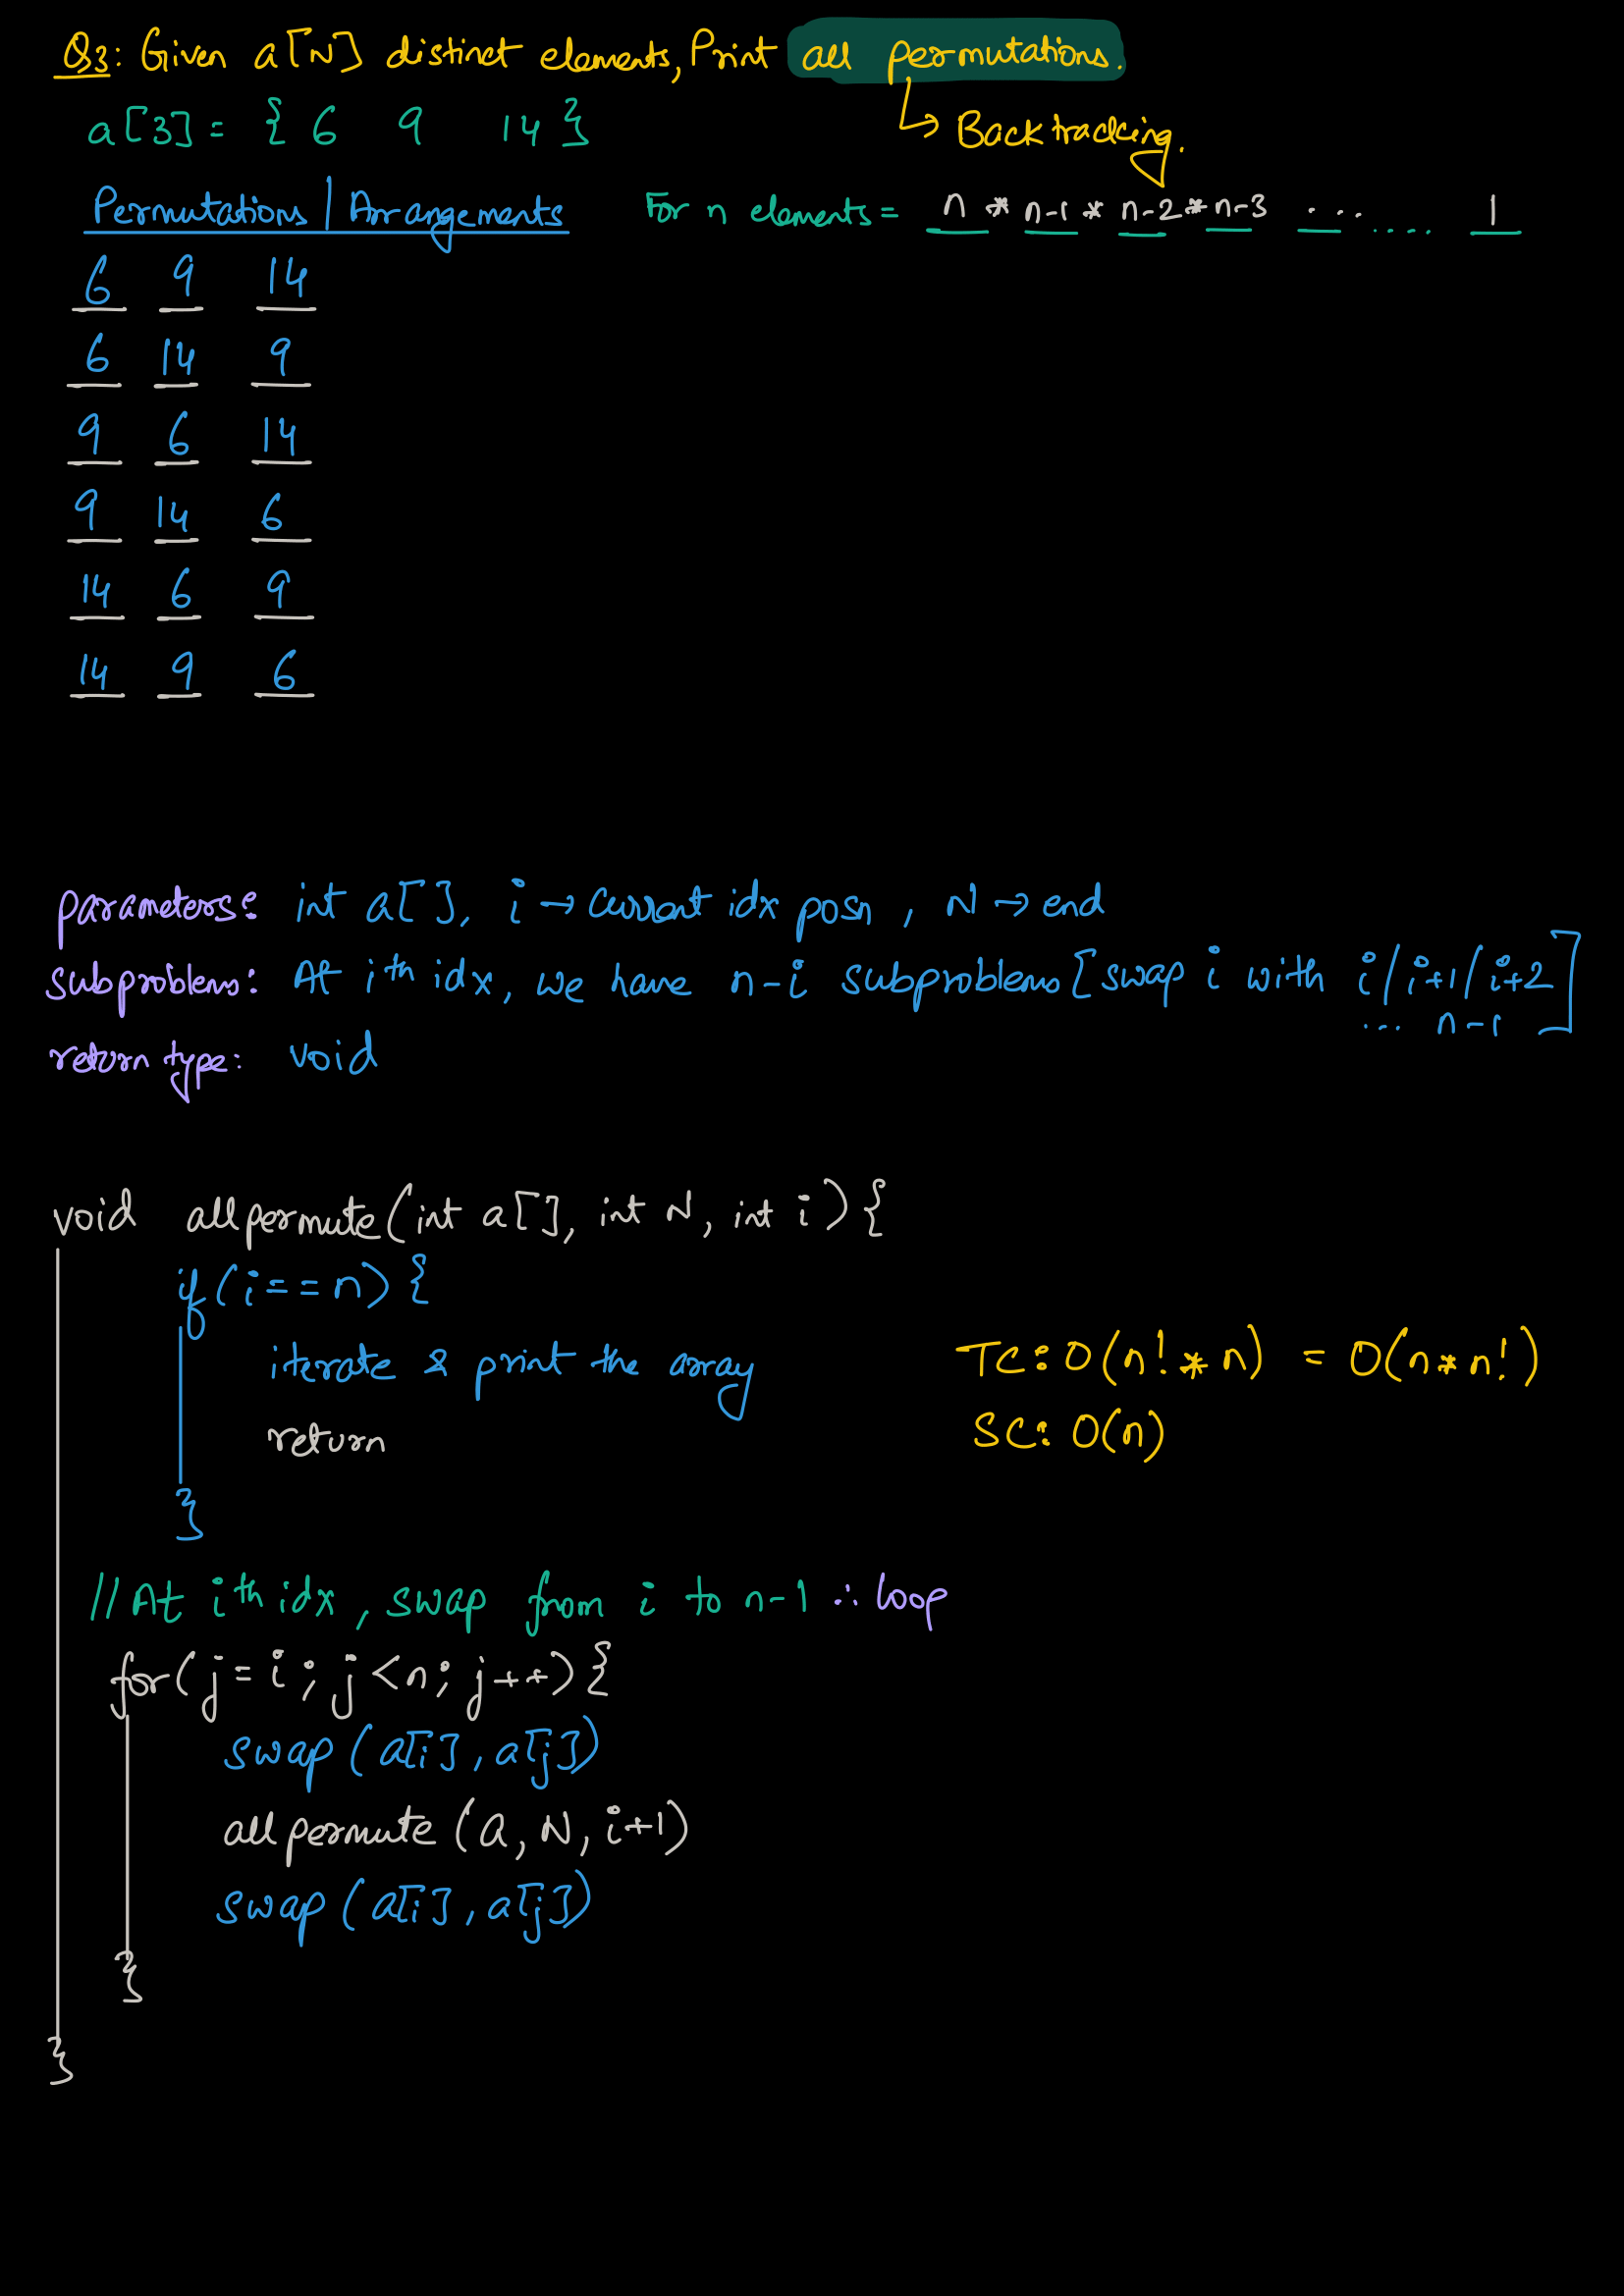 Q3: Given a[N] distinct elements, Print all permutations.
↳ Backtracking.
a[3] = { 6 9 14 }
Permutations | Arrangements
For n elements = n * n-1 * n-2 * n-3 ... .... 1
6 9 14
6 14 9
9 6 14
9 14 6
14 6 9
14 9 6
parameters: int a[], i → current idx posn, N → end
subproblems: At ith idx, we have n-i subproblems [swap i with i/i+1/i+2
... n-1]
return type: void
void allpermute(int a[], int N, int i){
if(i==n){
iterate & print the array
return
}
TC: O(n! * n) = O(n * n!)
SC: O(n)
//At ith idx, swap from i to n-1 ∴ loop
for(j=i; j<n; j++){
swap(a[i], a[j])
allpermute(A, N, i+1)
swap(a[i], a[j])
}
}